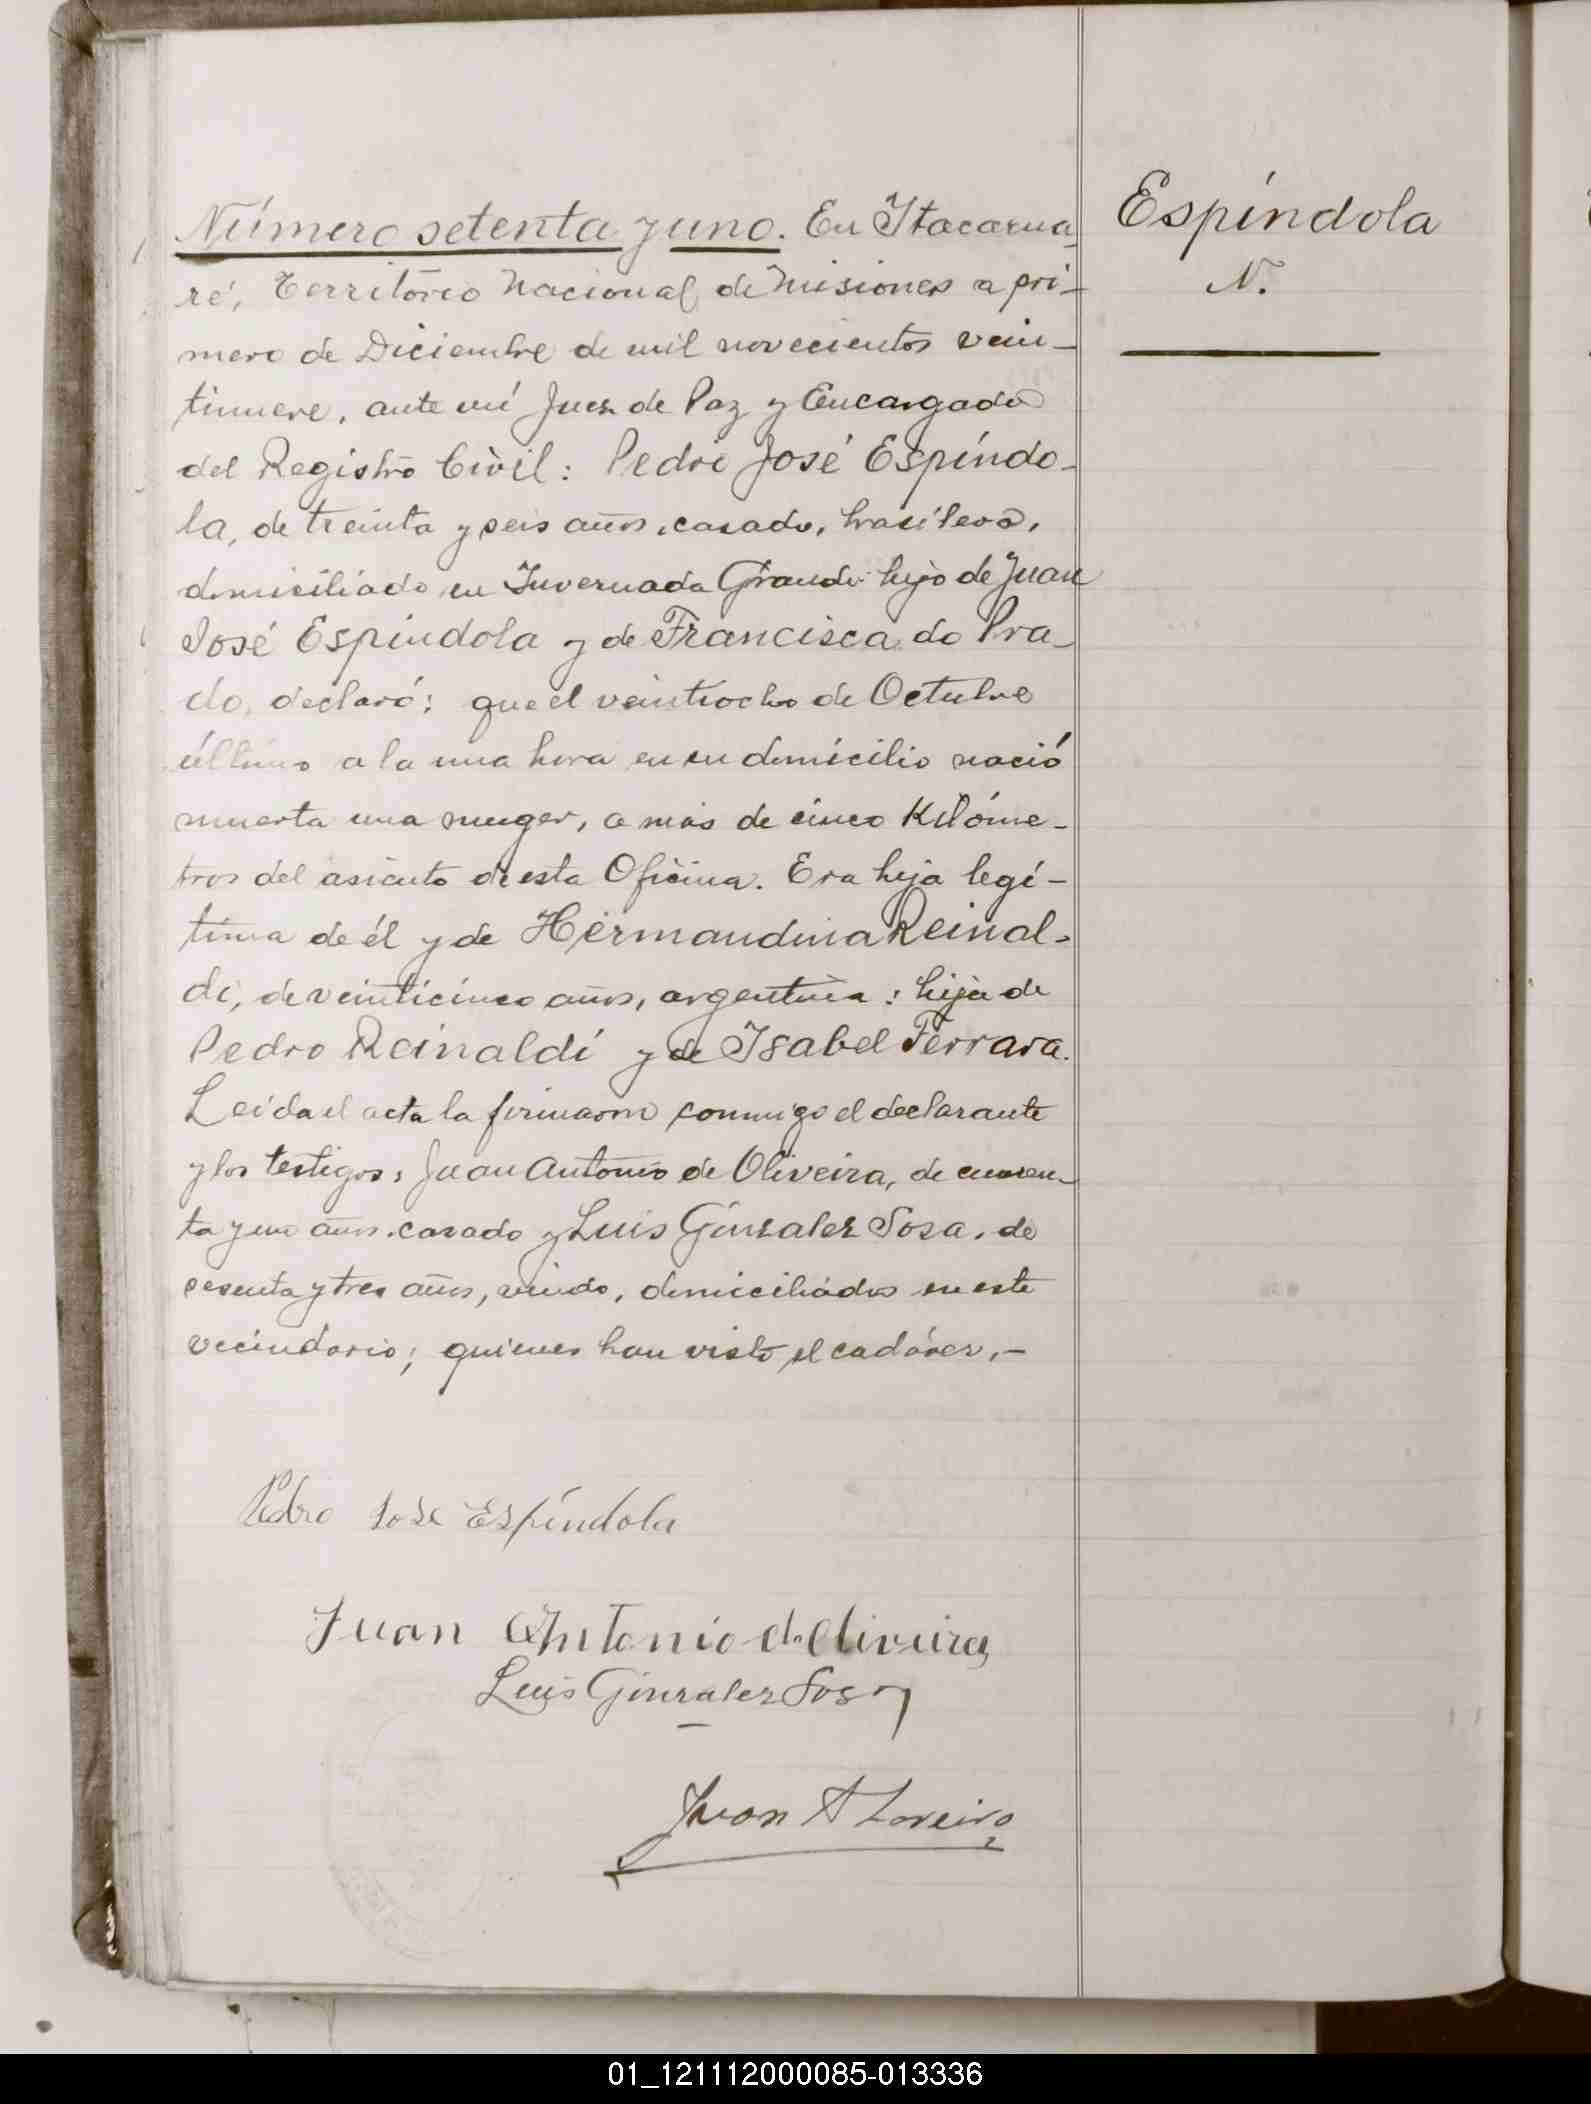 Número setenta y uno. En Itacarua-
ré, Territorio Nacional de Misiones a pri-
mero de Diciembre de mil novecientos vein-
tinueve, ante mí Juez de Paz y Encargado
del Registro Civil: Pedro José Espíndo-
la, de treinta y seis años, casado, brasilero,
domiciliado en Invernada Grande hijo de Juan
José Espíndola y de Francisca do Pra-
do, declaró: que el veintiocho de Octubre
último a la una hora en su domicilio nació
muerta una muger, a más de cinco Kilóme-
tros del asiento de esta Oficina. Era hija legí-
tima de él y de Hermandina Reinal-
di, de veinticinco años, argentina: hija de
Pedro Reinaldi y de Isabel Ferrara.
Leída el acta la firmaron conmigo el declarante
y los testigos: Juan Antonio de Oliveira, de cuaren-
ta y un años, casado y Luis Ginzalez Sosa, de
sesenta y tres años, viudo, domiciliados en este
vecindario; quienes han visto el cadáver.-
Espíndola
N.
Pedro José Espíndola
Juan Antonio de Oliveira
Luis Ginzalez Sosa
Juan A Loreiro
01_121112000085-013336